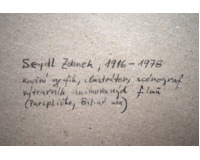 Seydl Zdenek, 1916-1978
knižní grafik, ilustrátor, scénograf
výtvarník animovaných filmů
(Paraplíčko,